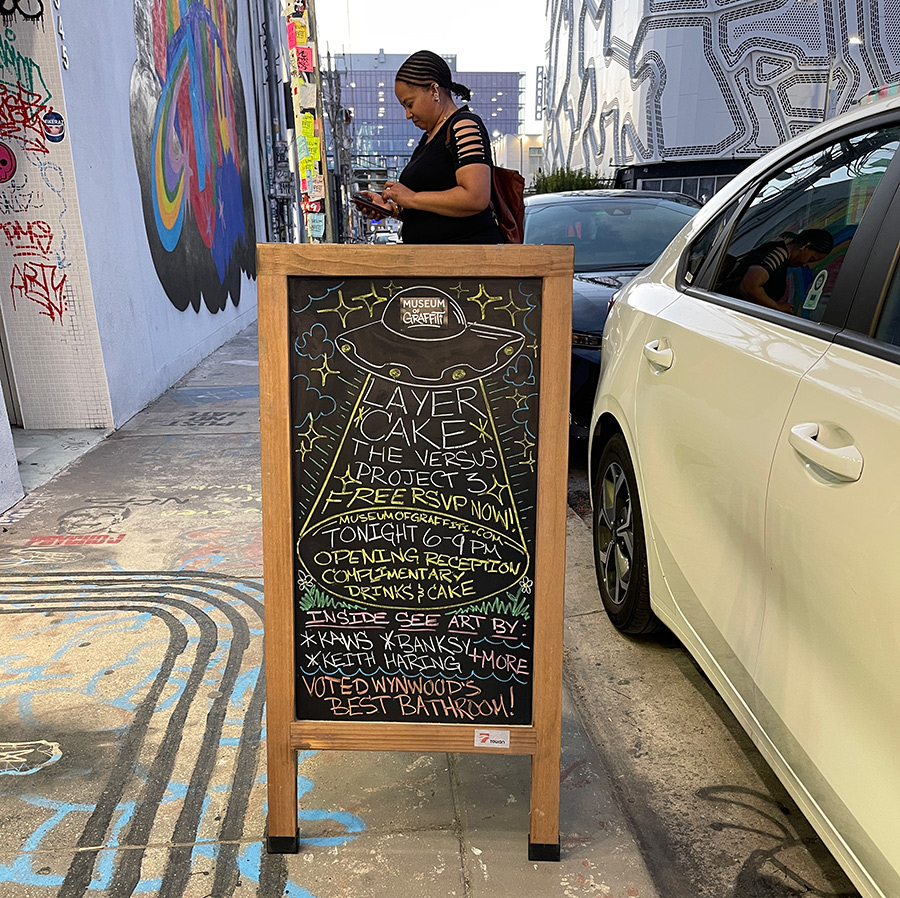 MUSEUM
OF
GRAFFITI
LAYER
CAKE
THE VERSUS
PROJECT 3
FREE RSVP NOW!
MUSEUMOFGRAFFITI.COM
TONIGHT 6-9 PM
OPENING RECEPTION
COMPLIMENTARY
DRINKS & CAKE
INSIDE SEE ART BY:
*KAWS *BANKSY
*KEITH HARING +MORE
VOTED WYNWOOD'S
BEST BATHROOM!